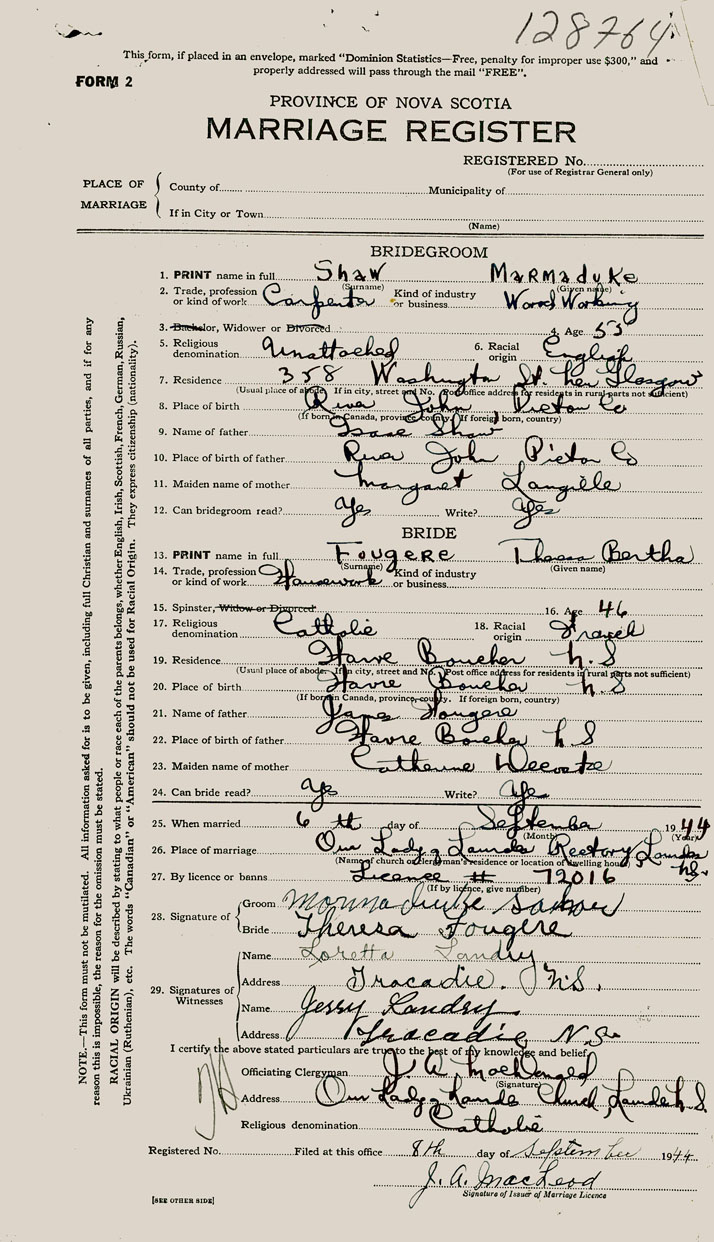 128764
This form, if placed in an envelope, marked "Dominion Statistics—Free, penalty for improper use $300," and
properly addressed will pass through the mail "FREE".
FORM 2
PROVINCE OF NOVA SCOTIA
MARRIAGE REGISTER
REGISTERED No.
(For use of Registrar General only)
PLACE OF MARRIAGE
County of
Municipality of
If in City or Town
(Name)
BRIDEGROOM
1. PRINT name in full Shaw Marmaduke
(Surname) (Given name)
2. Trade, profession or kind of work Carpenter Kind of industry or business Wood Working
3. Bachelor, Widower or Divorced 4. Age 53
5. Religious denomination Unattached 6. Racial origin English
7. Residence 358 Washington St. New Glasgow
(Usual place of abode. If in city, street and No. Post office address for residents in rural parts not sufficient)
8. Place of birth River John, Pictou Co
(If born in Canada, province, county. If foreign born, country)
9. Name of father Isaac Shaw
10. Place of birth of father River John Pictou Co
11. Maiden name of mother Margaret Langille
12. Can bridegroom read? Yes Write? Yes
BRIDE
13. PRINT name in full Fougere Theresa Bertha
(Surname) (Given name)
14. Trade, profession or kind of work Housework Kind of industry or business
15. Spinster, Widow or Divorced 16. Age 46
17. Religious denomination Catholic 18. Racial origin French
19. Residence Havre Boucher N.S
(Usual place of abode. If in city, street and No. Post office address for residents in rural parts not sufficient)
20. Place of birth Havre Boucher N.S
(If born in Canada, province, county. If foreign born, country)
21. Name of father James Fougere
22. Place of birth of father Havre Boucher N S
23. Maiden name of mother Catherine
24. Can bride read? Yes Write? Yes
25. When married 6 th day of September 1944
(Month) (Year)
26. Place of marriage Our Lady of Lourdes Rectory, Lourdes N.S.
(Name of church or clergyman's residence or location of dwelling house)
27. By licence or banns Licence # 72016
(If by licence, give number)
28. Signature of
Groom Marmaduke Shaw
Bride Theresa Fougere
29. Signatures of Witnesses
Name Loretta Landry
Address Tracadie, N.S.
Name Jerry Landry
Address Tracadie N.S.
I certify the above stated particulars are true to the best of my knowledge and belief
Officiating Clergyman J. A. MacDonald
(Signature)
Address Our Lady of Lourdes Church Lourdes N.S.
Religious denomination Catholic
Registered No. Filed at this office 8th day of September 1944
J. A. MacLeod
Signature of Issuer of Marriage Licence
[SEE OTHER SIDE]
NOTE.—This form must not be mutilated. All information asked for is to be given, including full Christian and surnames of all parties, and if for any
reason this is impossible, the reason for the omission must be stated.
RACIAL ORIGIN will be described by stating to what people or race each of the parents belongs, whether English, Irish, Scottish, French, German, Russian,
Ukrainian (Ruthenian), etc. The words "Canadian" or "American" should not be used for Racial Origin. They express citizenship (nationality).